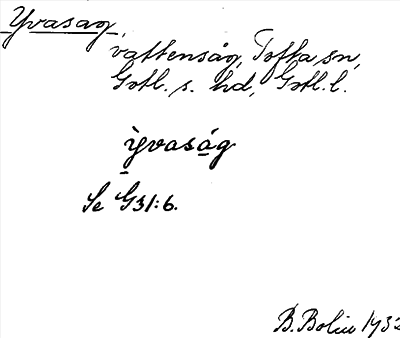 Yvasag,
vattensåg, Tofta sn,
Gotl. s. hd, Gotl. l.
ỳvaság
Se G31:6.
B. Bolin 1932